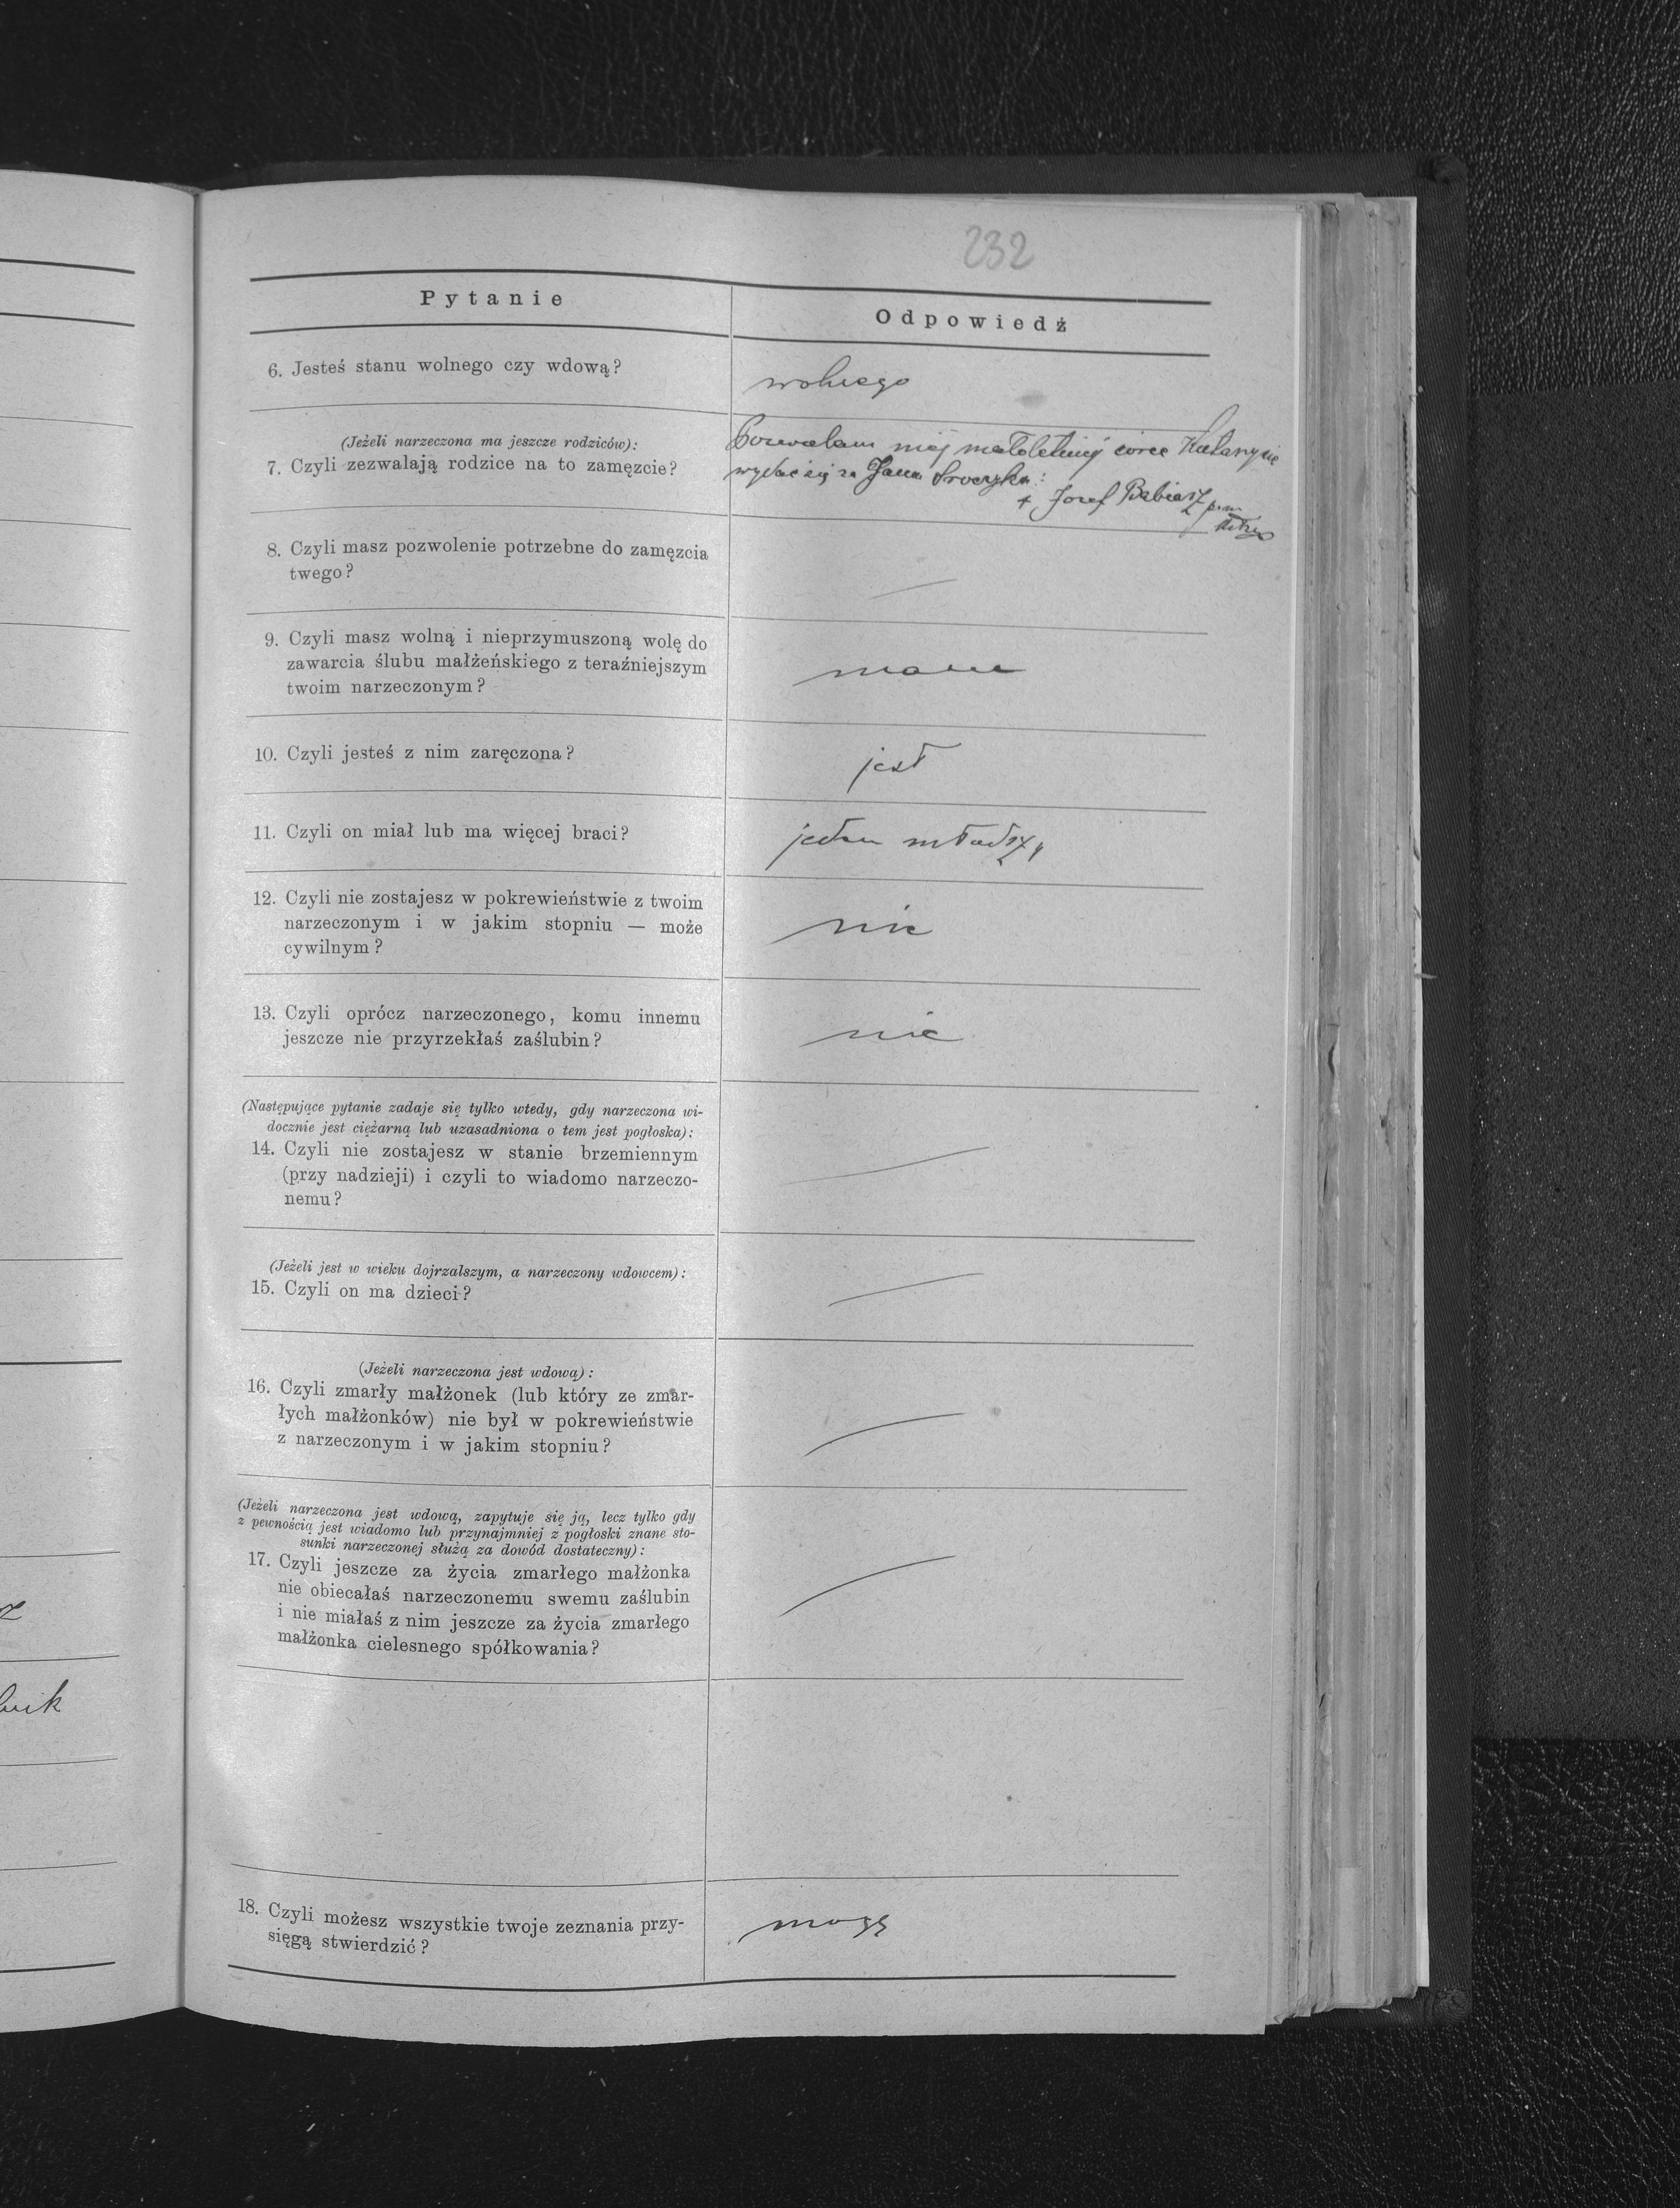 232
Pytanie
Odpowiedź
6. Jesteś stanu wolnego czy wdową?
wolnego
(Jeżeli narzeczona ma jeszcze rodziców):
7. Czyli zezwalają rodzice na to zamęzcie?
Pozwalam mej małoletniej córce Katarzynie
wydać się za Jana
+ Jozef Babiasz
8. Czyli masz pozwolenie potrzebne do zamęzcia
twego?
9. Czyli masz wolną i nieprzymuszoną wolę do
zawarcia ślubu małżeńskiego z teraźniejszym
twoim narzeczonym?
mam
10. Czyli jesteś z nim zaręczona?
jest
11. Czyli on miał lub ma więcej braci?
jeden młodszy
12. Czyli nie zostajesz w pokrewieństwie z twoim
narzeczonym i w jakim stopniu — może
cywilnym?
nie
13. Czyli oprócz narzeczonego, komu innemu
jeszcze nie przyrzekłaś zaślubin?
nie
(Następujące pytanie zadaje się tylko wtedy, gdy narzeczona wi-
docznie jest ciężarną lub uzasadniona o tem jest pogłoska):
14. Czyli nie zostajesz w stanie brzemiennym
(przy nadzieji) i czyli to wiadomo narzeczo-
nemu?
(Jeżeli jest w wieku dojrzalszym, a narzeczony wdowcem):
15. Czyli on ma dzieci?
(Jeżeli narzeczona jest wdową):
16. Czyli zmarły małżonek (lub który ze zmar-
łych małżonków) nie był w pokrewieństwie
z narzeczonym i w jakim stopniu?
(Jeżeli narzeczona jest wdową, zapytuje się ją, lecz tylko gdy
z pewnością jest wiadomo lub przynajmniej z pogłoski znane sto-
sunki narzeczonej służą za dowód dostateczny):
17. Czyli jeszcze za życia zmarłego małżonka
nie obiecałaś narzeczonemu swemu zaślubin
i nie miałaś z nim jeszcze za życia zmarłego
małżonka cielesnego spółkowania?
18. Czyli możesz wszystkie twoje zeznania przy-
sięgą stwierdzić?
mogę